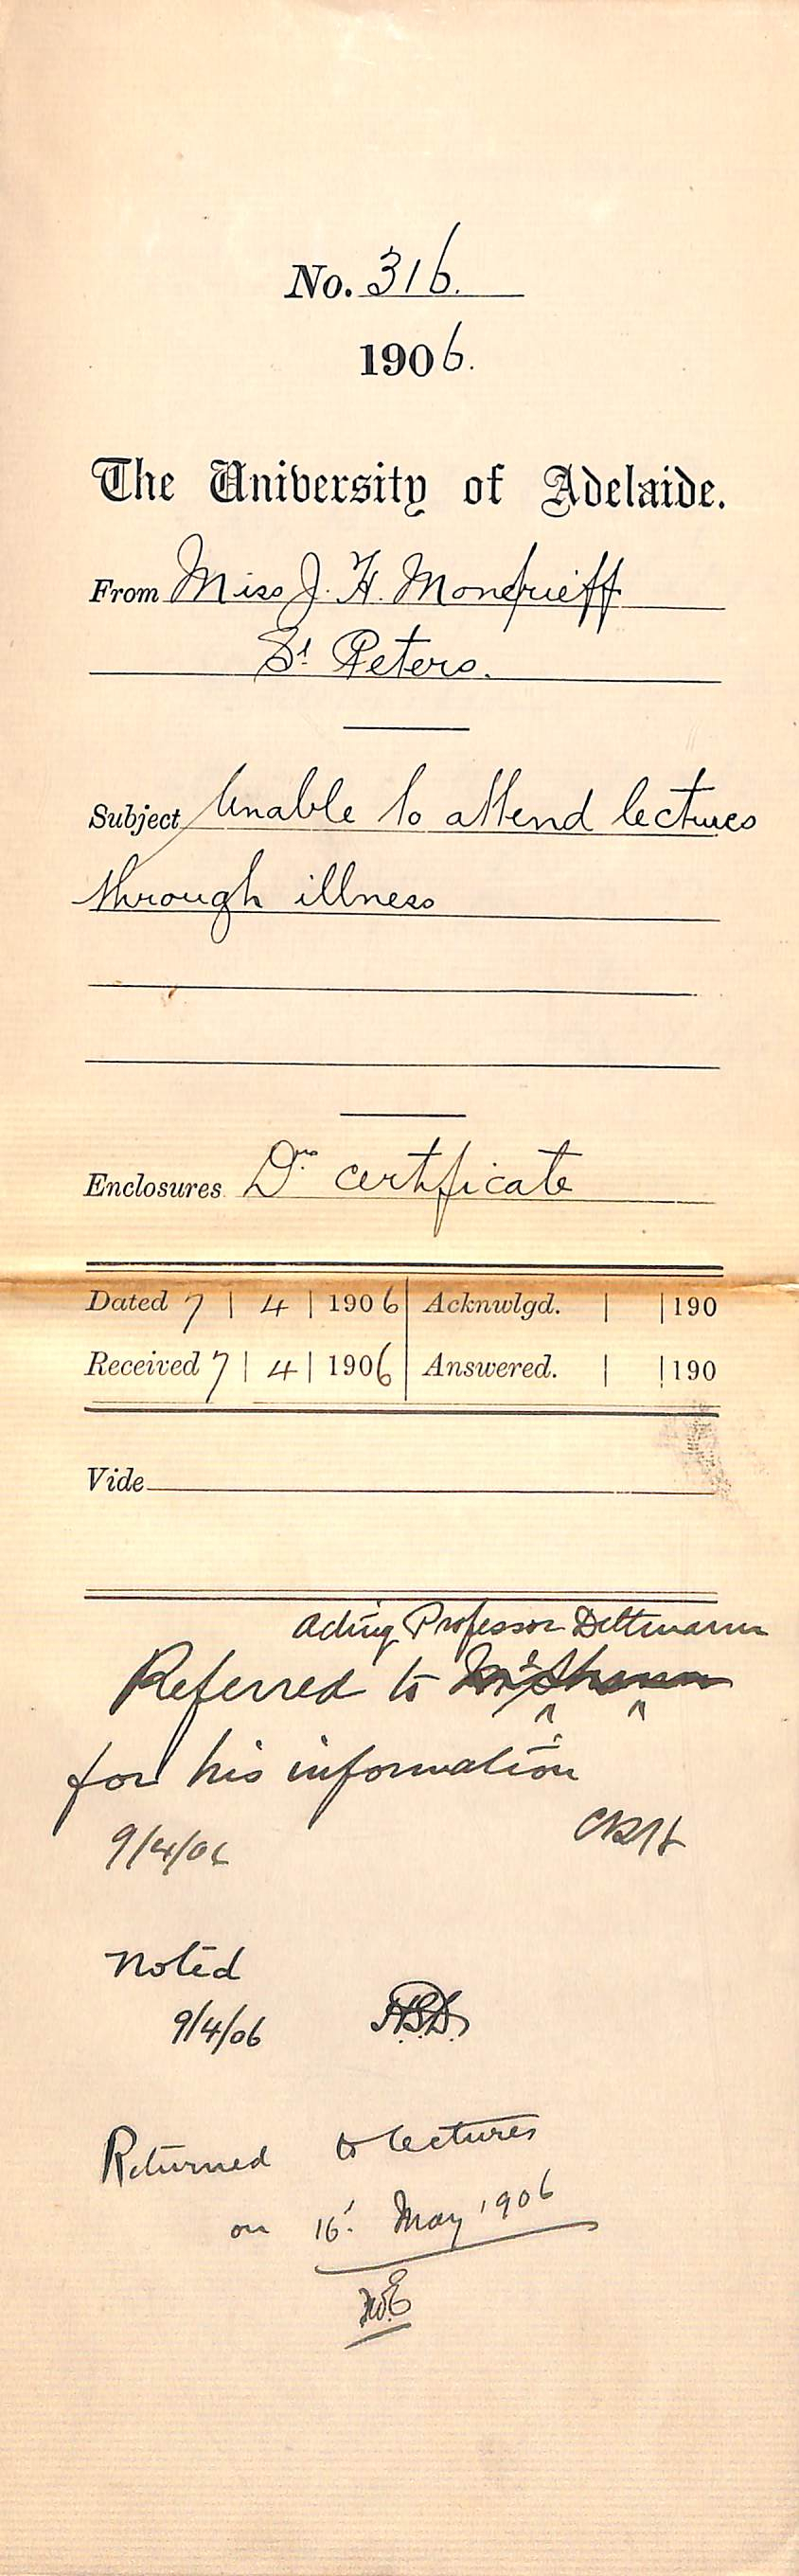 No. 316.
1906.
The University of Adelaide.
From Miss J. H. Moncrieff
St Peters.
Subject Unable to attend lectures
through illness
Enclosures Drs certificate
Dated 7 | 4 | 1906 Acknwlgd. | | 190
Received 7 | 4 | 1906 Answered. | | 190
Vide
Acting Professor Dettmann
Referred to
for his information
9/4/06 CRH
Noted
9/4/06 H.S.D.
Returned to lectures
on 16. May 1906